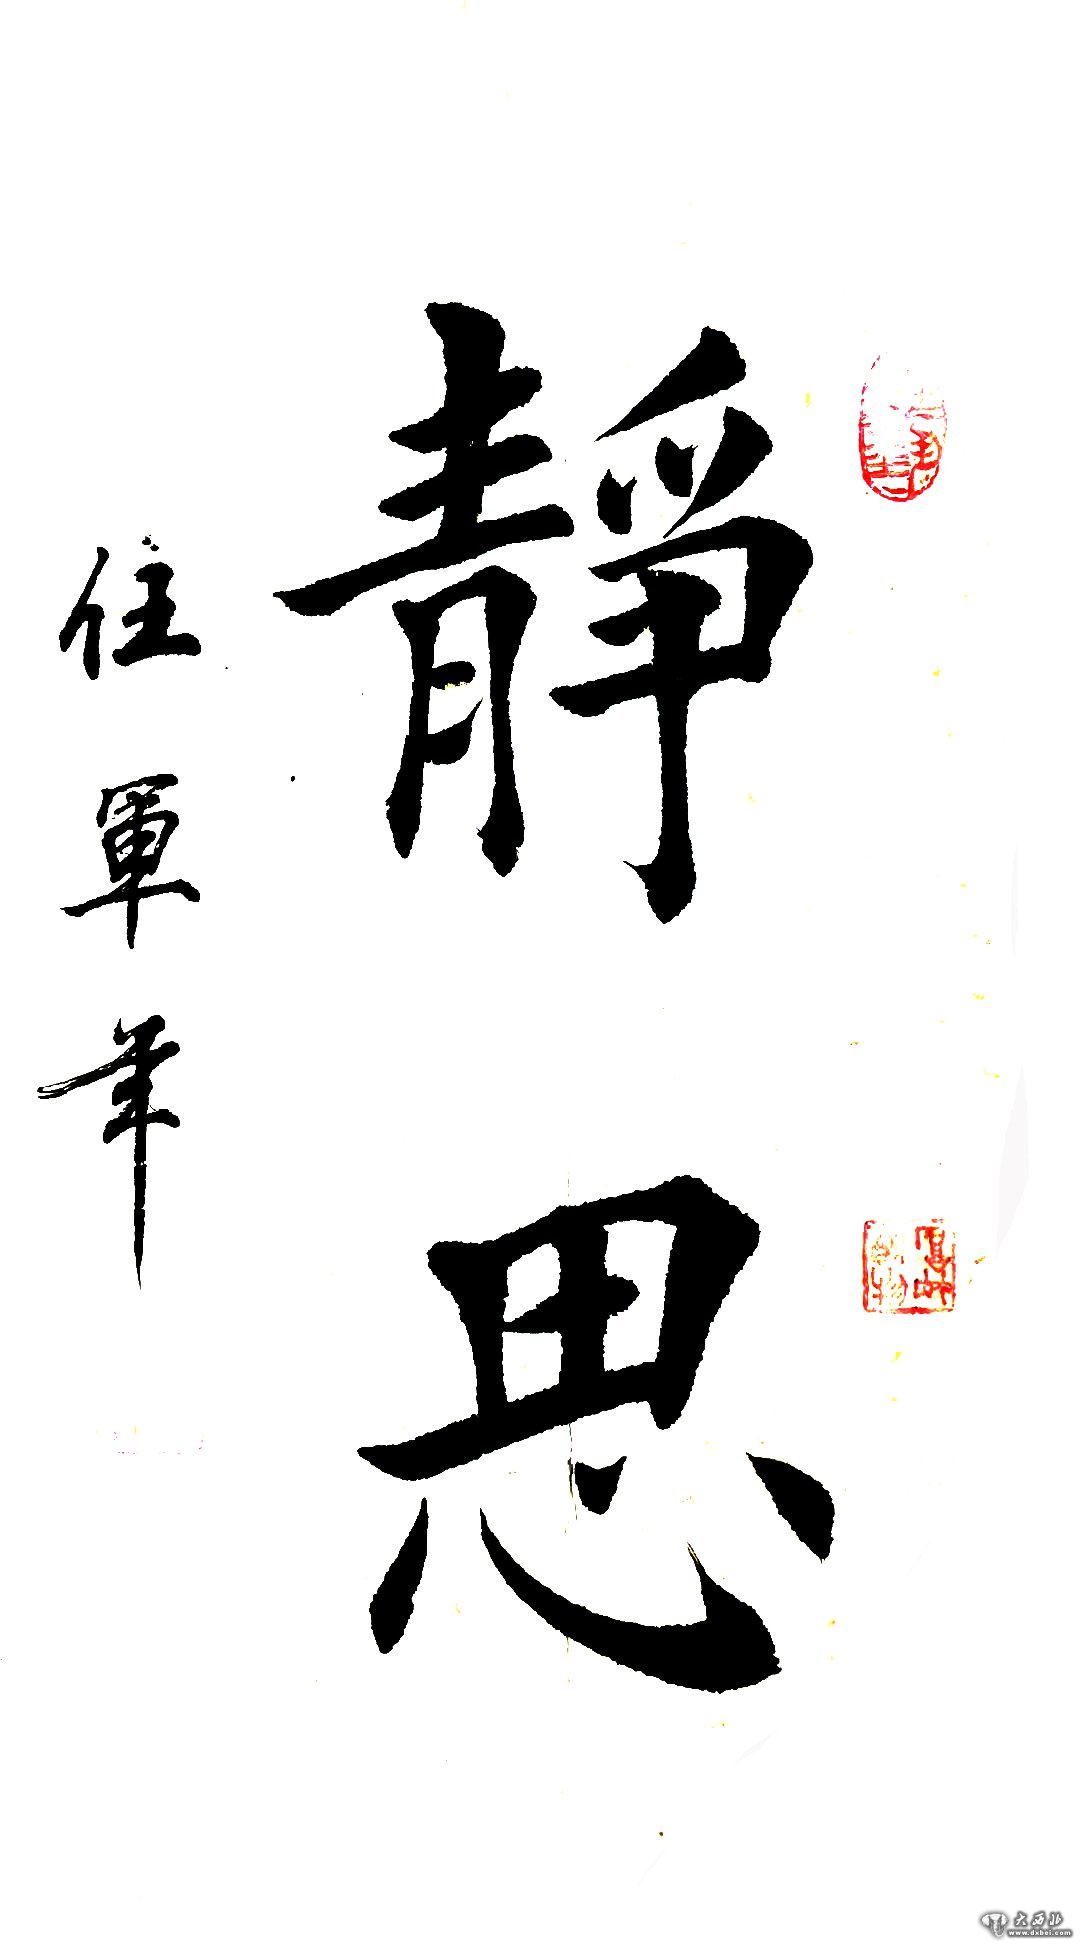 靜思
任軍年
大西北
www.dxbei.com